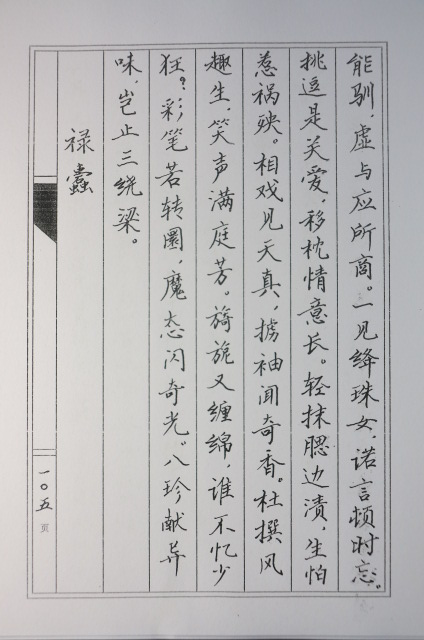 能驯，虚与应所商。一见绛珠女，诺言顿时忘。
挑逗是关爱，移枕情意长。轻抹腮边渍，生怕
惹祸殃。相戏见天真，掳袖闻奇香。杜撰风
趣生，笑声满庭芳。旖旎又缠绵，谁不忆少
狂？彩笔若转圜，魔态闪奇光。八珍献异
味，岂止三绕梁。
禄蠹
一〇五
页